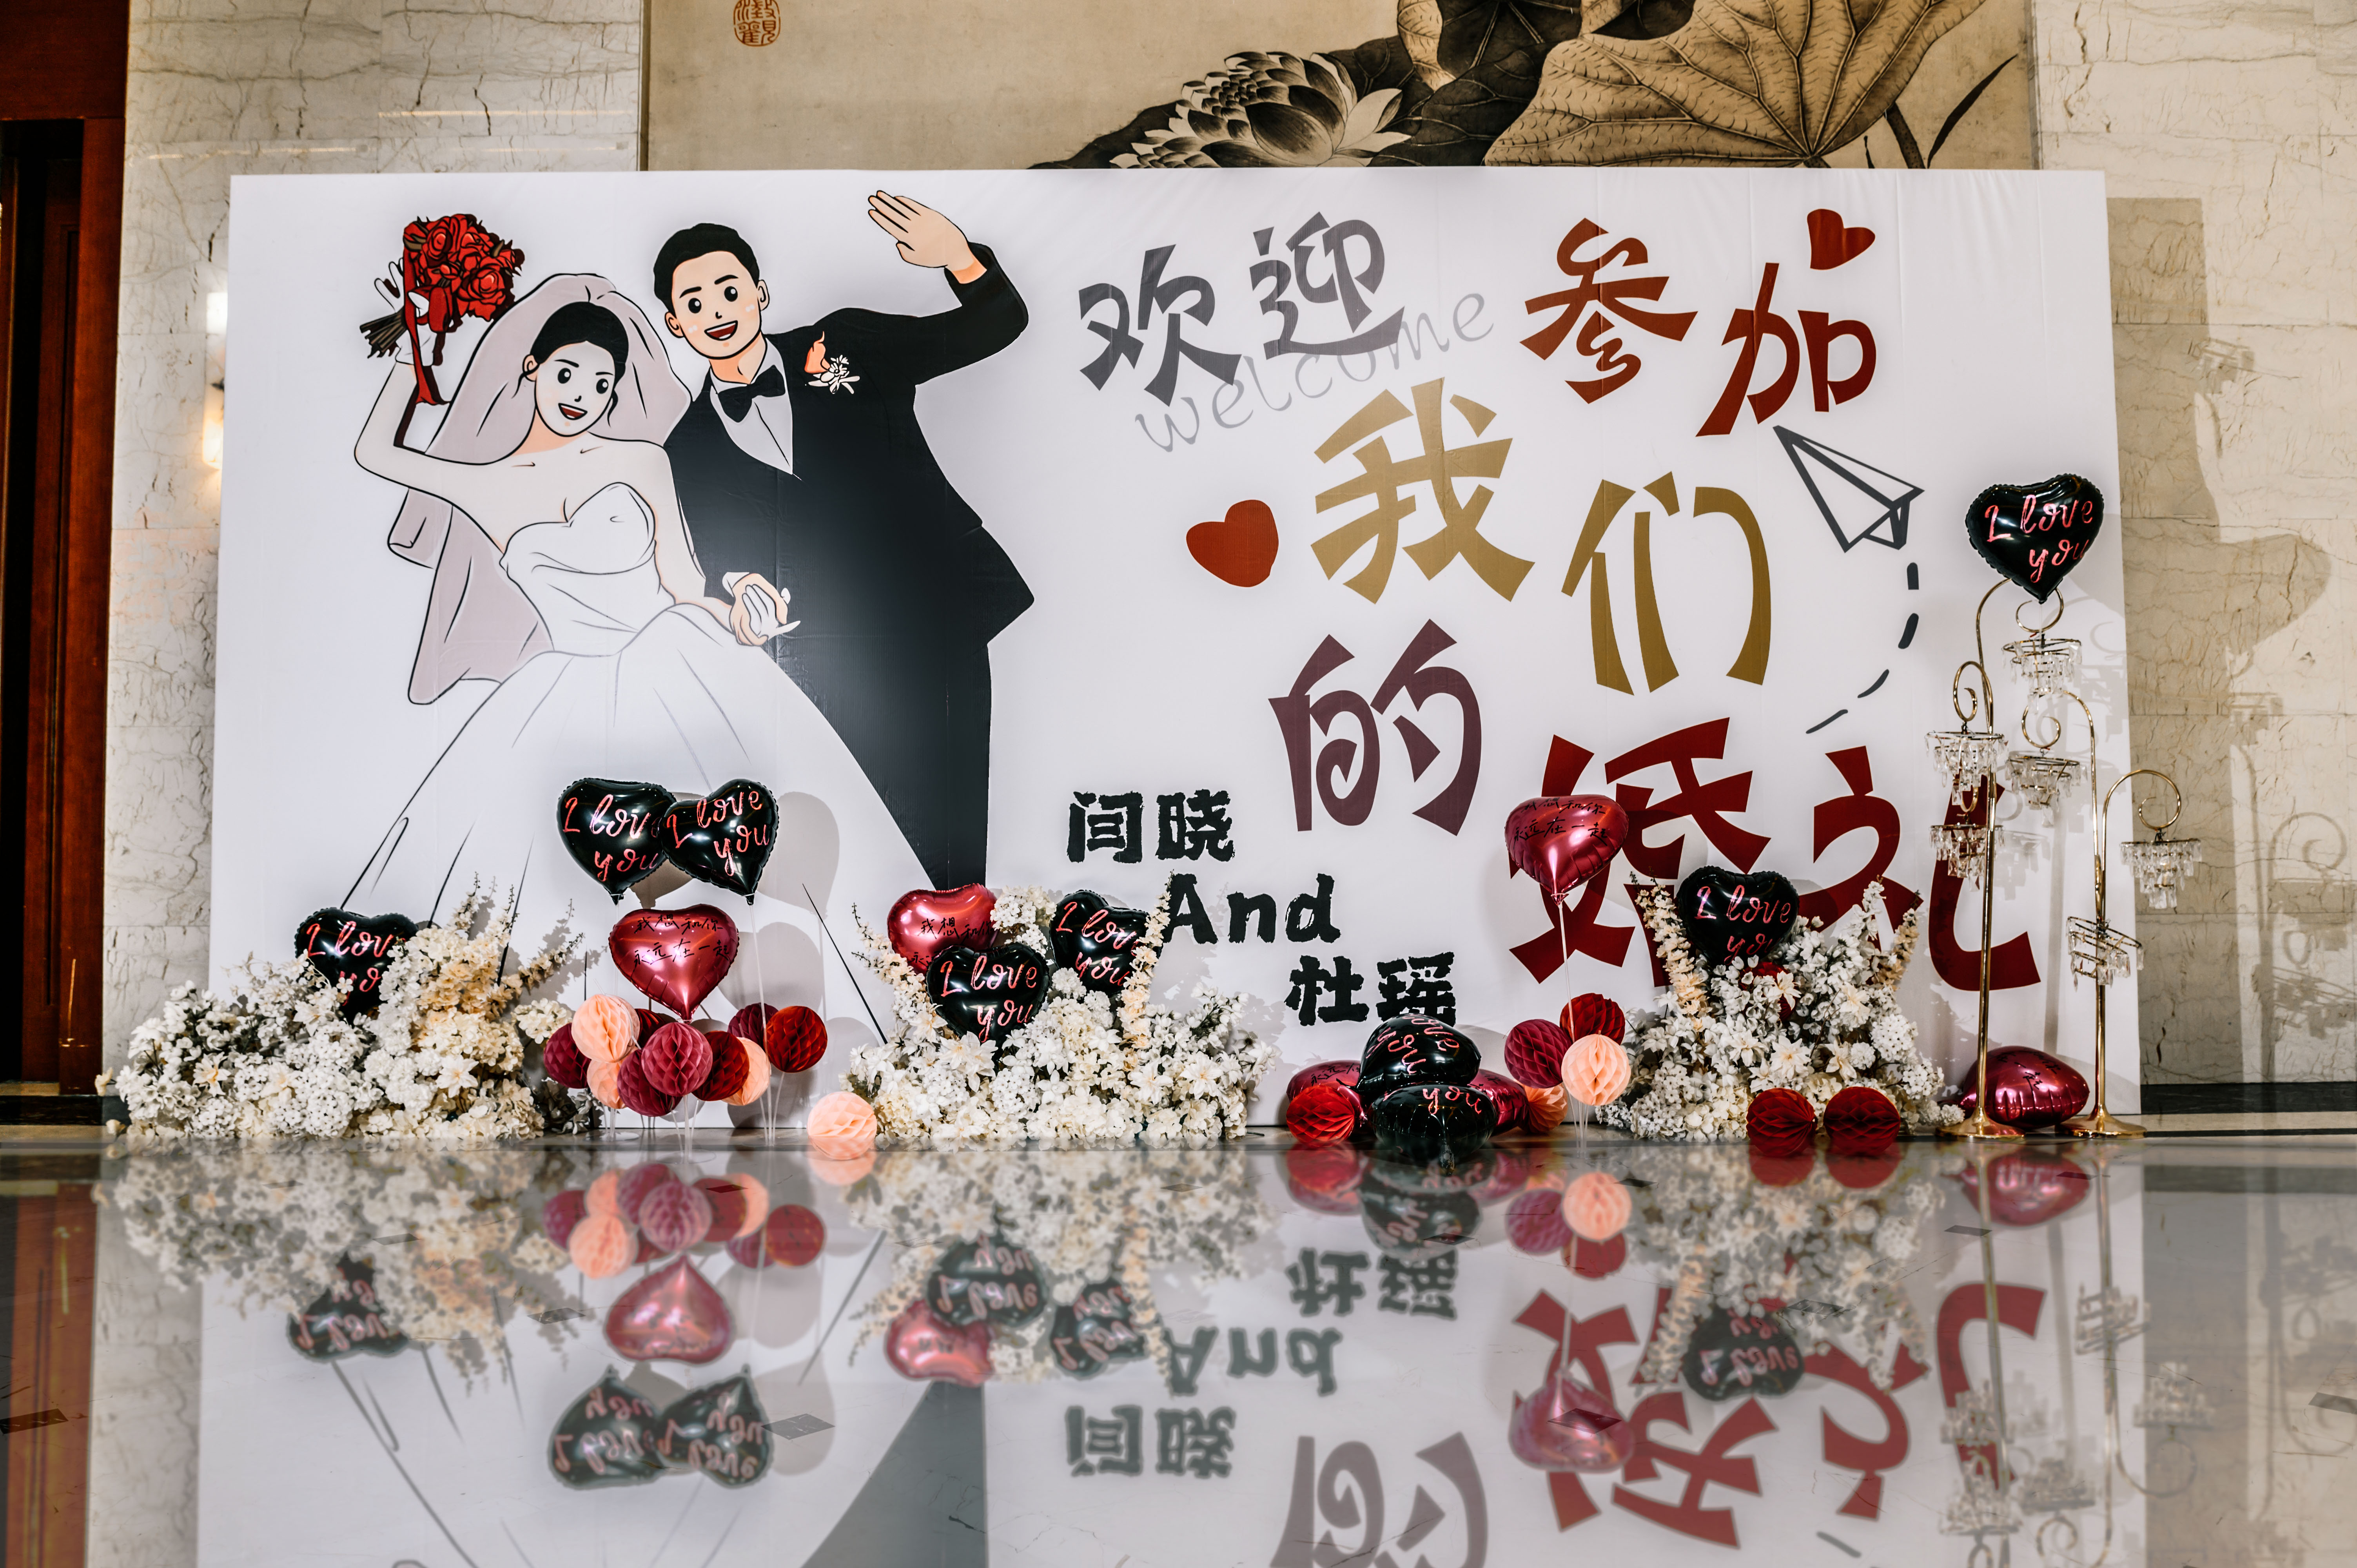 澂觀
欢迎
welcome
参加
我们
的
婚礼
闫晓
And
杜瑶
I love
you
I love
you
I love
you
I love
you
我想和你
永远在一起
我想和你
I love
you
I love
you
我想和你
永远在一起
I love
you
love
you
you